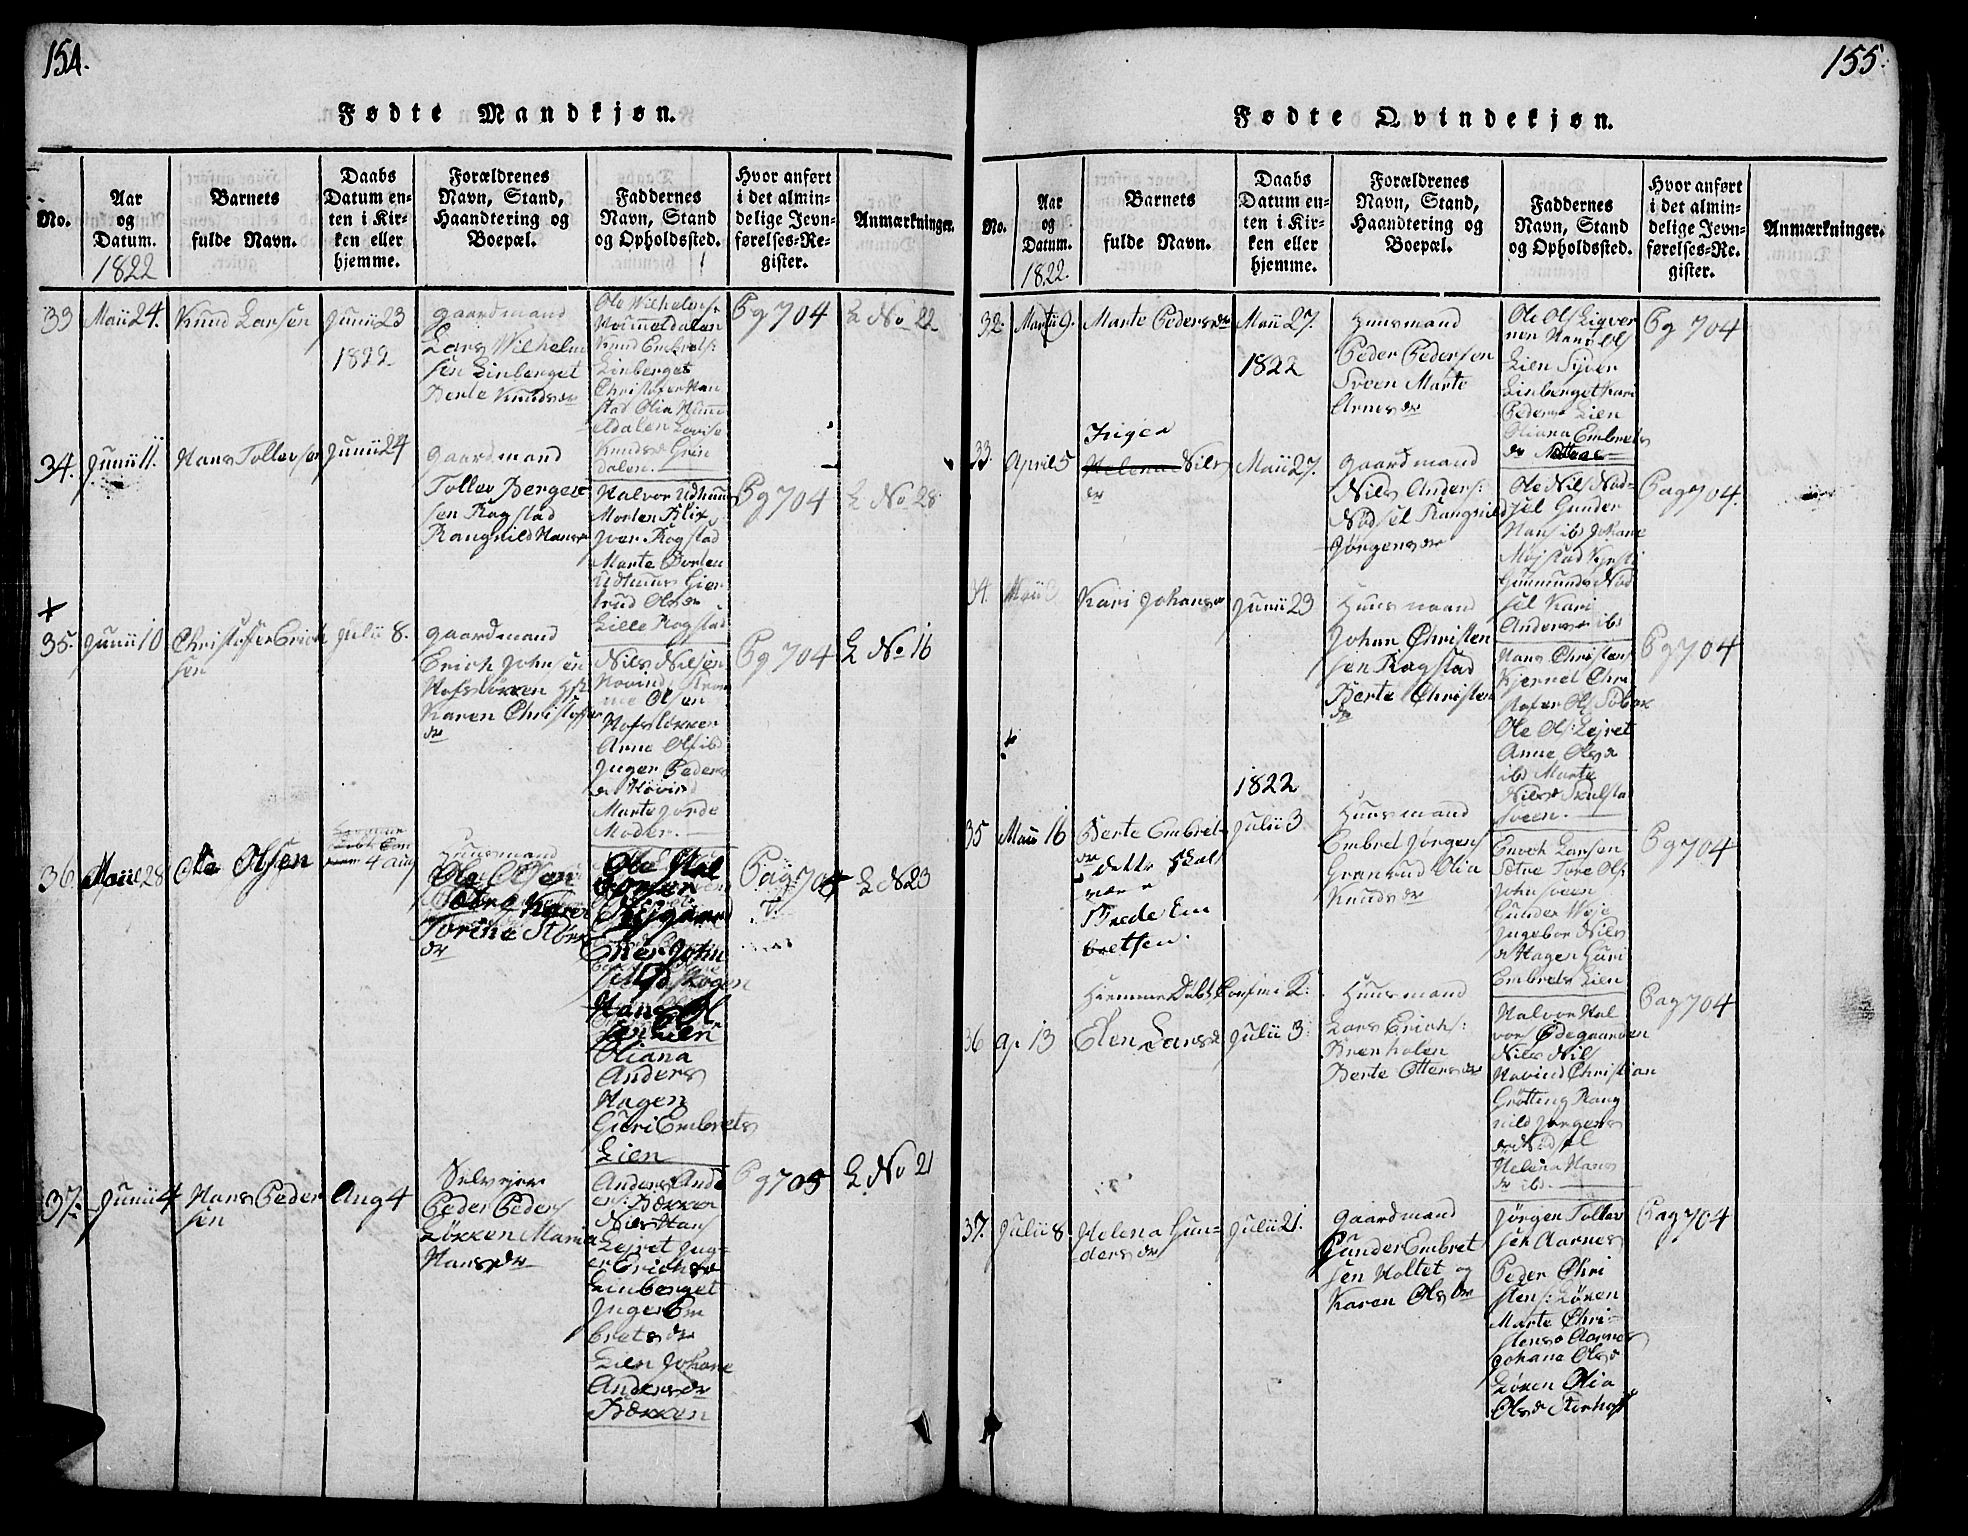 154.
Fødte Mandkjøn.
No.
Aar
og
Datum.
1822
Barnets
fulde Navn.
Daabs
Datum en-
ten i Kir-
ken eller
hjemme.
Forældrenes
Navn, Stand,
Haandtering og
Boepæl.
Faddernes
Navn, Stand
og Opholdssted.
Hvor anført
i det almin-
delige Jevn-
førelses-Re-
gister.
Anmærkninger.
33
Maii 24.
Knud Larsen
Junii 23
1822
gaardmand
Lars Wilhelm
sen Linberget
Berte Knudsdr
Ole Wilhelms:
Hummeldalen
Knud Embrets:
Linberget
Christofer Han
stad Olia Humm
eldalen Lovise
Knudsdr Grin
dalen.
Pg 704
L No 22
34.
Junii 11.
Hans Tollevsen
Junii 24
gaardmand
Tollev Berger
sen Rogstad
Rangnild Hansdr
Halvor Udhuus
Morten Klix
Iver Rogstad
Marte Morten
Udhuus Gier
trud Olsdr
Lille Rogstad
Pg 704
L No 28
35.
Junii 10
Christoffer Erich
sen
Julii 8.
gaardmand
Erich Johnsen
Hofsløkken
Karen Christoffer
dr
Nils Nilsen
Hovind
Olsen
Hofsløkken
Arne Ols ibd
Inger Peders
dr Hovind
Marte Jorde
Moder.
Pg 704
L No 16
36
Maii 28
Ola Olsen
4 Aug
Huusmand
Ole Olsen
Sætre Karen
Torine Størk
dr
Ole Hal
vorsen
John
Skogen
Hans Ol
Lien
Oliana
Anders
Hagen
Guri Embrets
Lien
Pag 704
L N 23
37.
Junii 4
Hans Peder
sen
Aug 4
Selveier
Peder Peders
Løkken Maria
Hansdr
Anders And
ers: Bækken
Nils Hans
Lejret Ing-
er Erichsdr
Linberget
Inger Em
bretsdr
Lien Johane
Andersdr
Bækken
Pg 705
L No 21
155.
Fødte Qvindekjøn.
No.
Aar
og
Datum.
1822.
Barnets
fulde Navn.
Daabs
Datum en-
ten i Kir-
ken eller
hjemme.
Forældrenes
Navn, Stand,
Haandtering og
Boepæl.
Faddernes
Navn, Stand
og Opholdssted.
Hvor anført
i det almin-
delige Jevn-
førelses-Re-
gister.
Anmærkninger.
32.
Martii 9.
Marte Pedersdr
Maii 27.
1822
Huusmand
Peder Pedersen
Sveen Marte
Arnesdr
Ole Ols Ligver
nen Hans Ols
Lien Syver
Linberget Kari
Pedersdr Lien
Oliana Embrets
dr
Pg 704
33
April 5
Inger
Helena Nils
dr
Maii 27.
gaardmand
Nils Anders:
Nødsel Rangnild
Jørgensdr
Ole Nils Nød-
sel Gunder
Hans ibd Johane
Mojstad Kjersti
Gudmunds Nød
sel Kari
Andersdr ibd
Pag 704.
34.
Maii
Kari Johansdr
Junii 23
Huusmand
Johan Christen
sen Rogstad
Berte Christen
dr
Hans Christens
Kjernet Chri
stofer Ols
Ole Ols: Lejret
Anne Olsdr
ibd Marte
Nilsdr Skulsta
sveen.
Pg 704
1822
35
Maii 16
Berte Embret
dr
dette skal
være
Brede Em
bretsen.
Julii 3
Huusmand
Embret Jørgens
Granrud Olia
Knudsdr
Enoch Larsen
Sætre Tore Ols:
Johnsveen
Gunder Woje
Ingebor Nils
dr Hagen Guri
Embrets Lien
Pg 704
36
Ap 13
Hiemme Døbt Confirm K:
Elen Larsdr
Julii 3
Huusmand
Lars Erichs:
Brenholen
Berte Ottersdr
Halvor Hal
vors Ødegaarden
Nils Nils
Hovind Christian
Grøtting Rang
nild Jørgens
dr Nødsel
Helena Hans
dr ibd
Pag 704
37.
Julii 8
Helena Gun-
dersdr
Julii 21.
gaardmand
Gunder Embret
sen Holtet og
Karen Olsdr
Jørgen Tollev
sen Aarnes
Peder Chri
stens: Løken
Marte Chri-
stensdr Aarnes
Johane Olsdr
Løken Olia
Olsdr
Pag 704